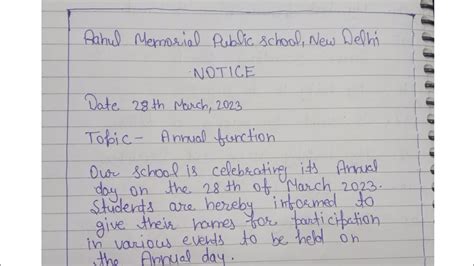 Rahul Memorial Public school, New Delhi
NOTICE
Date 28th March, 2023
Topic - Annual function
Our school is celebrating its Annual
day on the 28th of March 2023.
Students are hereby informed to
give their names for participation
in various events to be held on
the Annual day.